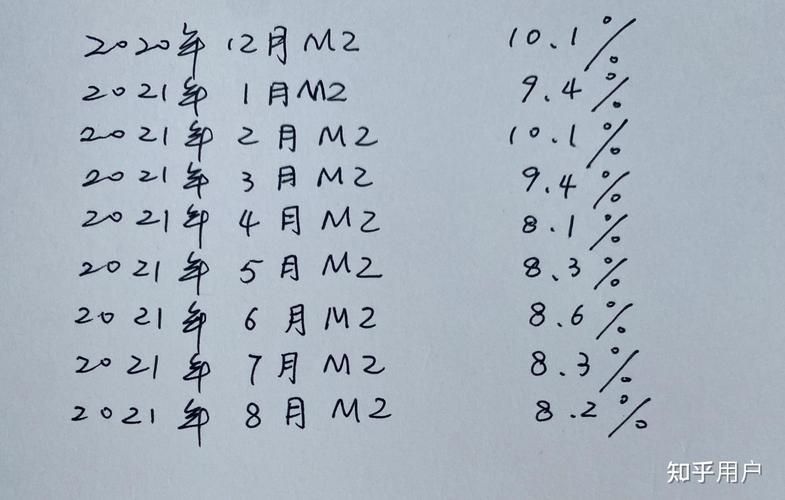 2020年 12月 M2 10.1%
2021年 1月 M2 9.4%
2021年 2月 M2 10.1%
2021年 3月 M2 9.4%
2021年 4月 M2 8.1%
2021年 5月 M2 8.3%
2021年 6月 M2 8.6%
2021年 7月 M2 8.3%
2021年 8月 M2 8.2%
知乎用户